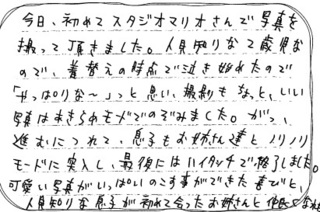 今日、初めてスタジオマリオさんで写真を
撮って頂きました。人見知りな2歳児な
ので、着替えの時点で泣き始めたので
「やっぱりな〜」っと思い、撮影も なっと、いい
写真はあきらめモードでのぞみました。がっ、
進むにつれて、息子もお姉さん達とノリノリ
モードに突入し、最後にはハイタッチで終了しました。
可愛い写真がいっぱいのこす事ができた喜びと、
人見知りな息子が初めて会ったお姉さんと仲良く